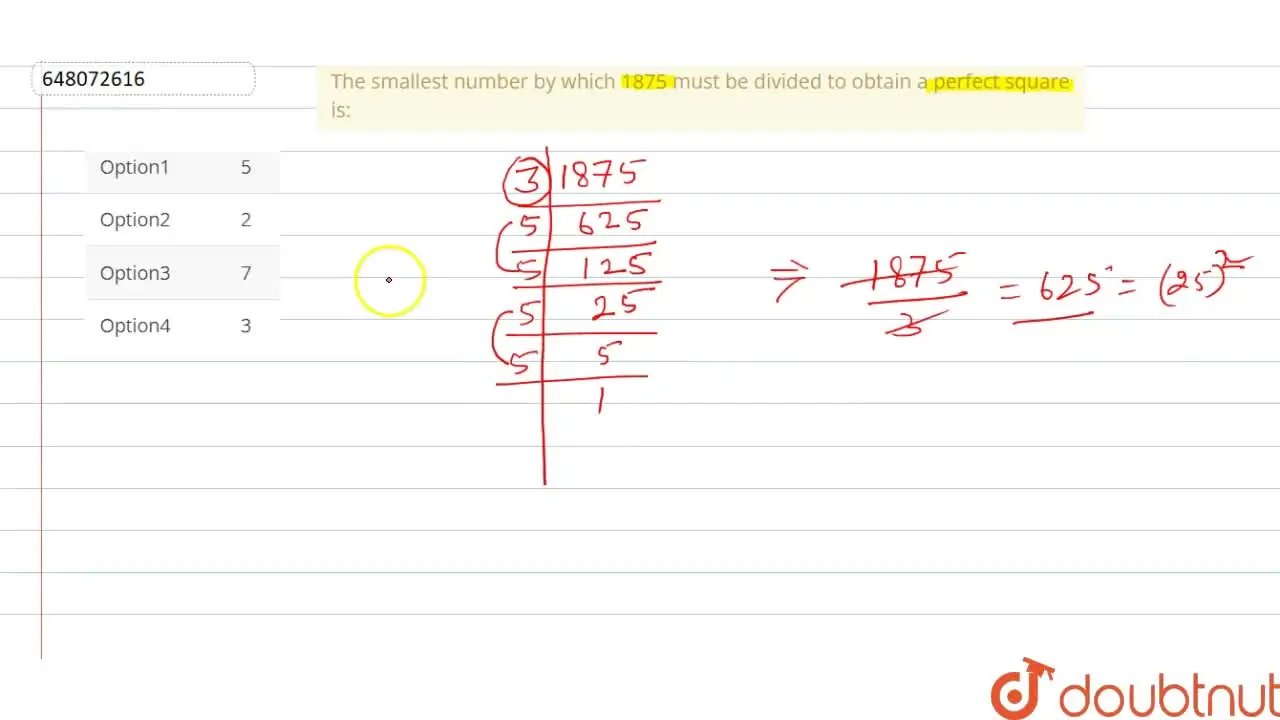 648072616
The smallest number by which 1875 must be divided to obtain a perfect square
is:
Option1 5
Option2 2
Option3 7
Option4 3
3 1875
5 625
5 125
5 25
5 5
1
⇒ 1875/3 = 625 = (25)²
doubtnut